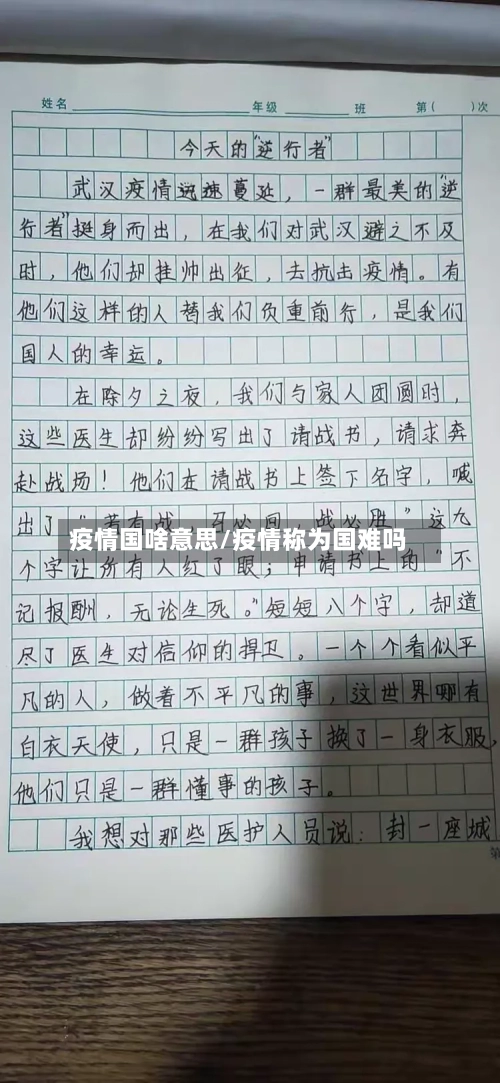 姓名 年级 班 第( )次
今天的“逆行者”
武汉疫情迅速蔓延，一群最美的“逆
行者”挺身而出，在我们对武汉避之不及
时，他们却挂帅出征，去抗击疫情。有
他们这样的人替我们负重前行，是我们
国人的幸运。
在除夕之夜，我们与家人团圆时，
这些医生却纷纷写出了请战书，请求奔
赴战场！他们在请战书上签下名字，喊
出了“若有战，召必回，战必胜”这九
疫情国啥意思/疫情称为国难吗
个字让所有人红了眼；申请书上的“不
记报酬，无论生死。”短短八个字，却道
尽了医生对信仰的捍卫。一个个看似平
凡的人，做着不平凡的事，这世界哪有
白衣天使，只是一群孩子换了一身衣服，
他们只是一群懂事的孩子。
我想对那些医护人员说：封一座城
第